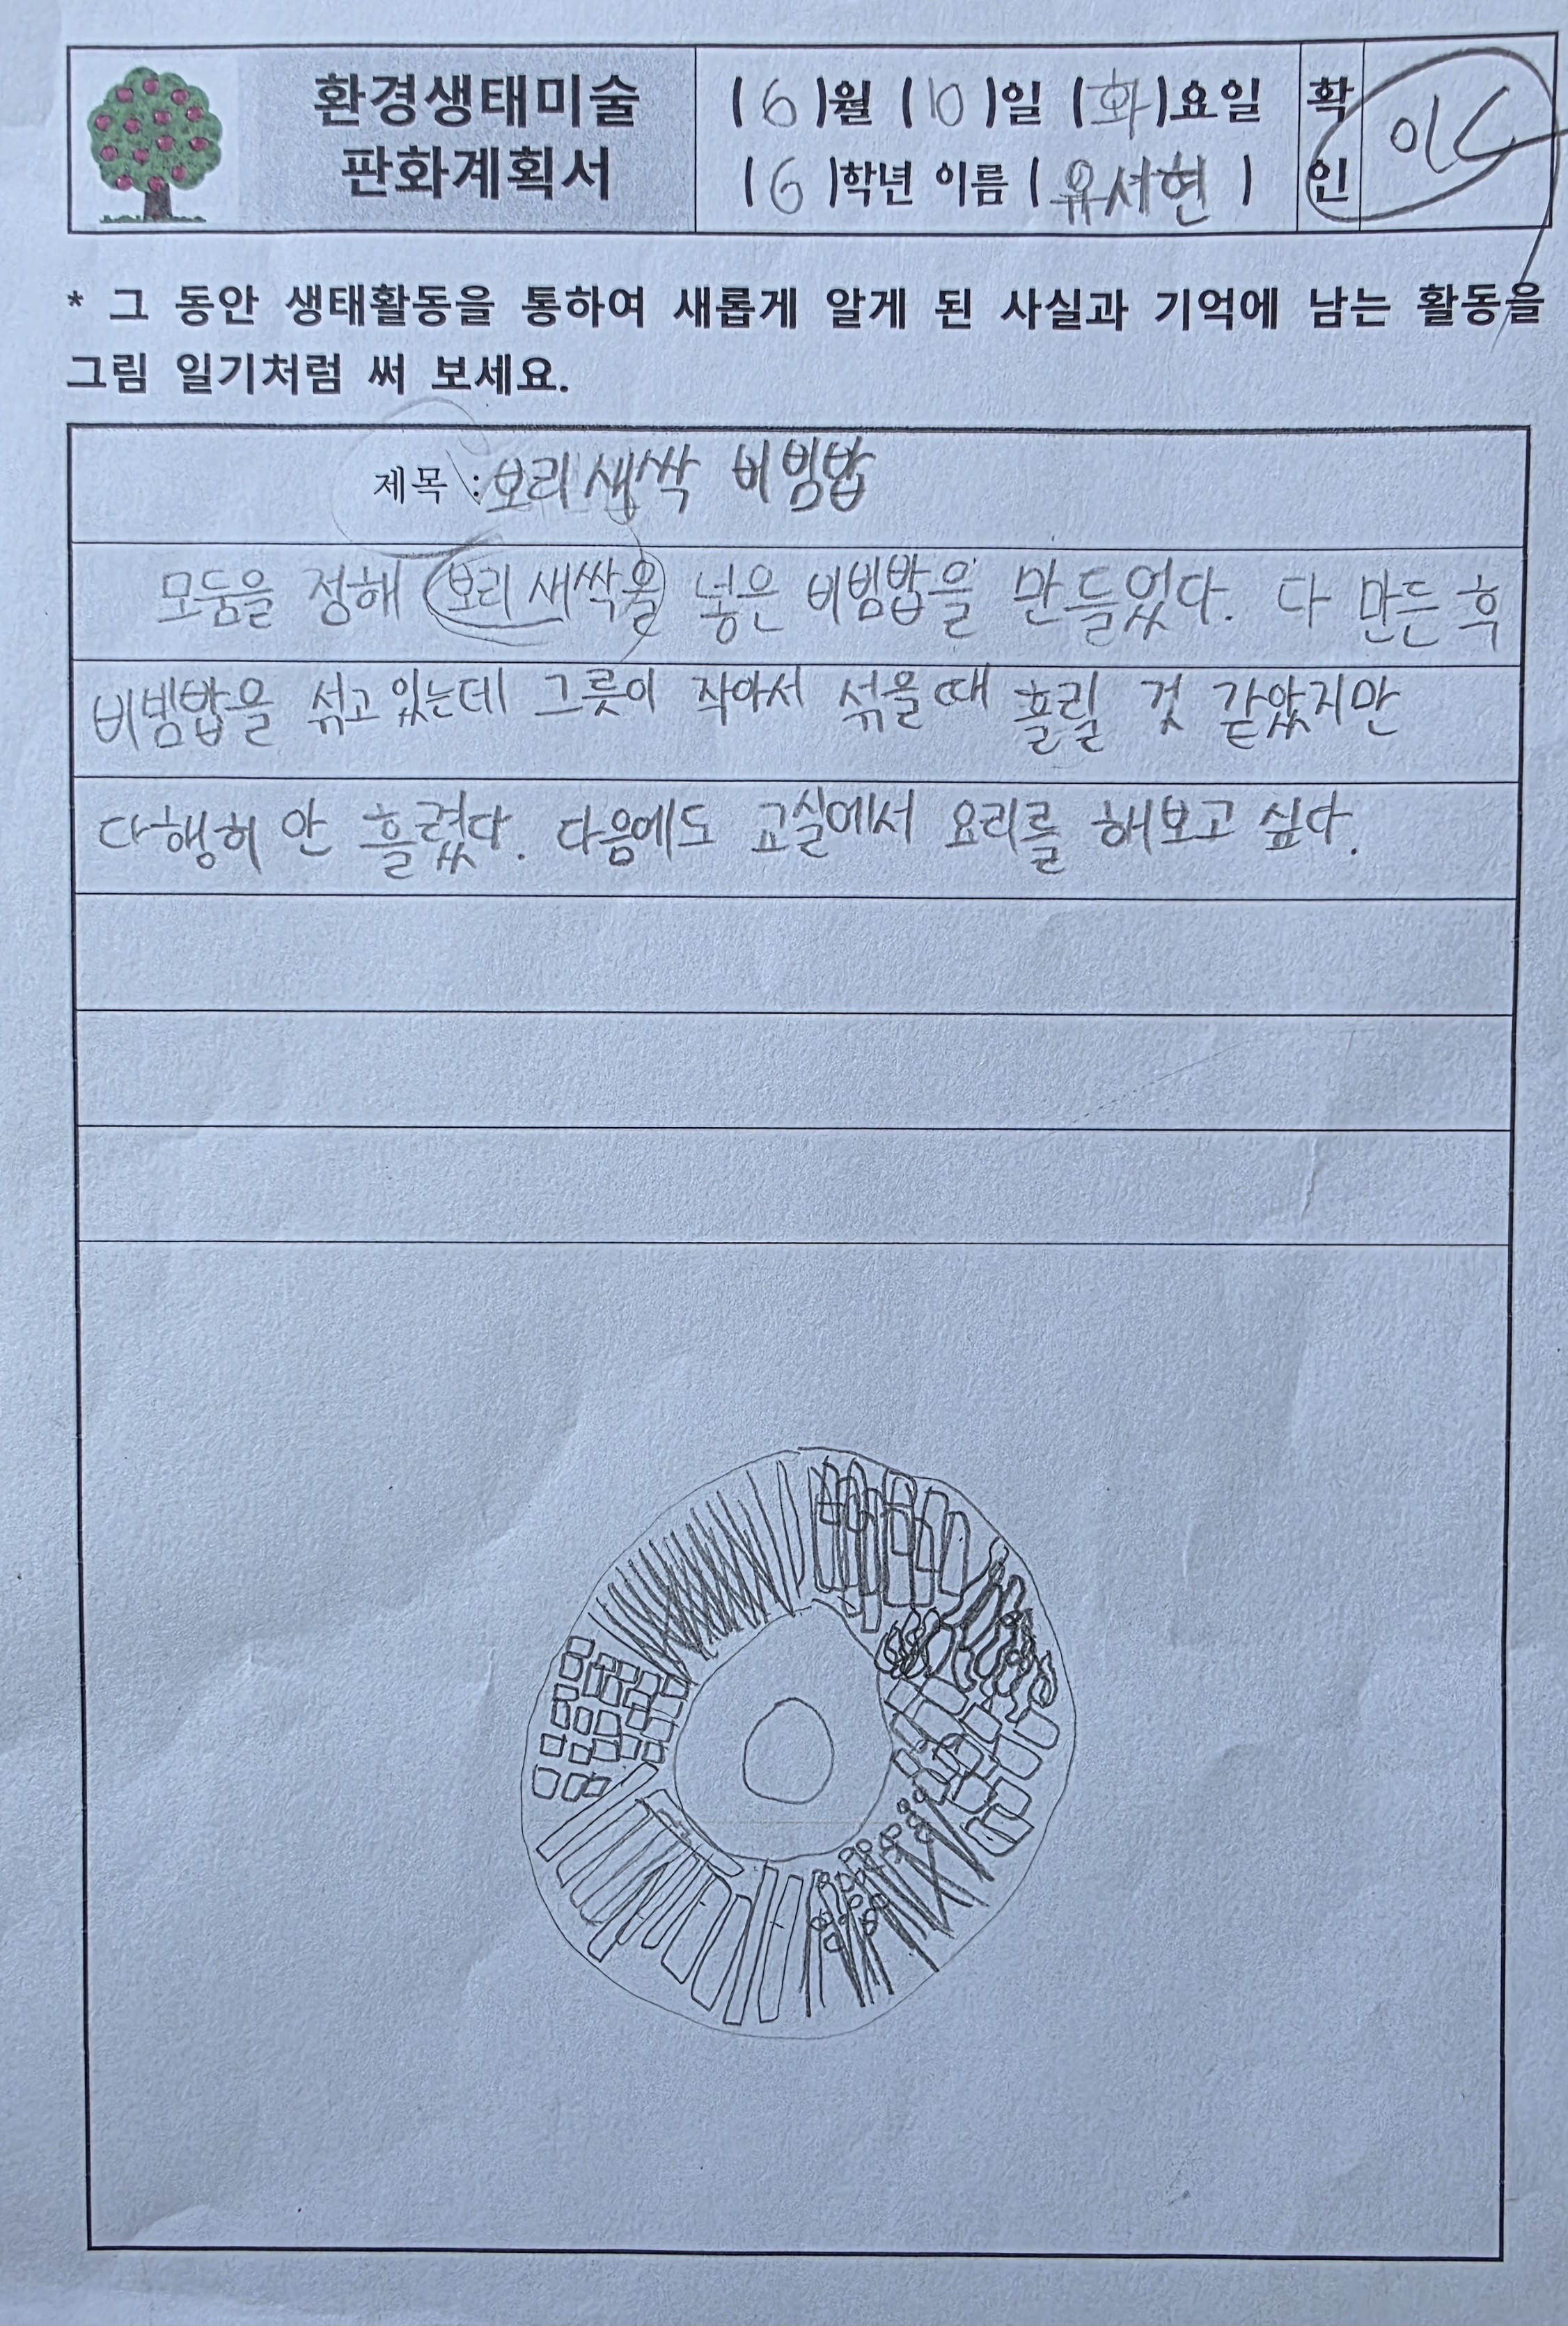 환경생태미술
판화계획서
( 6 )월 ( 10 )일 (화)요일
( 6 )학년 이름 ( 유서현 )
확인
* 그 동안 생태활동을 통하여 새롭게 알게 된 사실과 기억에 남는 활동을
그림 일기처럼 써 보세요.
제목 : 보리새싹 비빔밥
모둠을 정해 보리 새싹을 넣은 비빔밥을 만들었다. 다 만든 후
비빔밥을 섞고 있는데 그릇이 작아서 섞을때 흘릴 것 같았지만
다행히 안 흘렸다. 다음에도 교실에서 요리를 해보고 싶다.